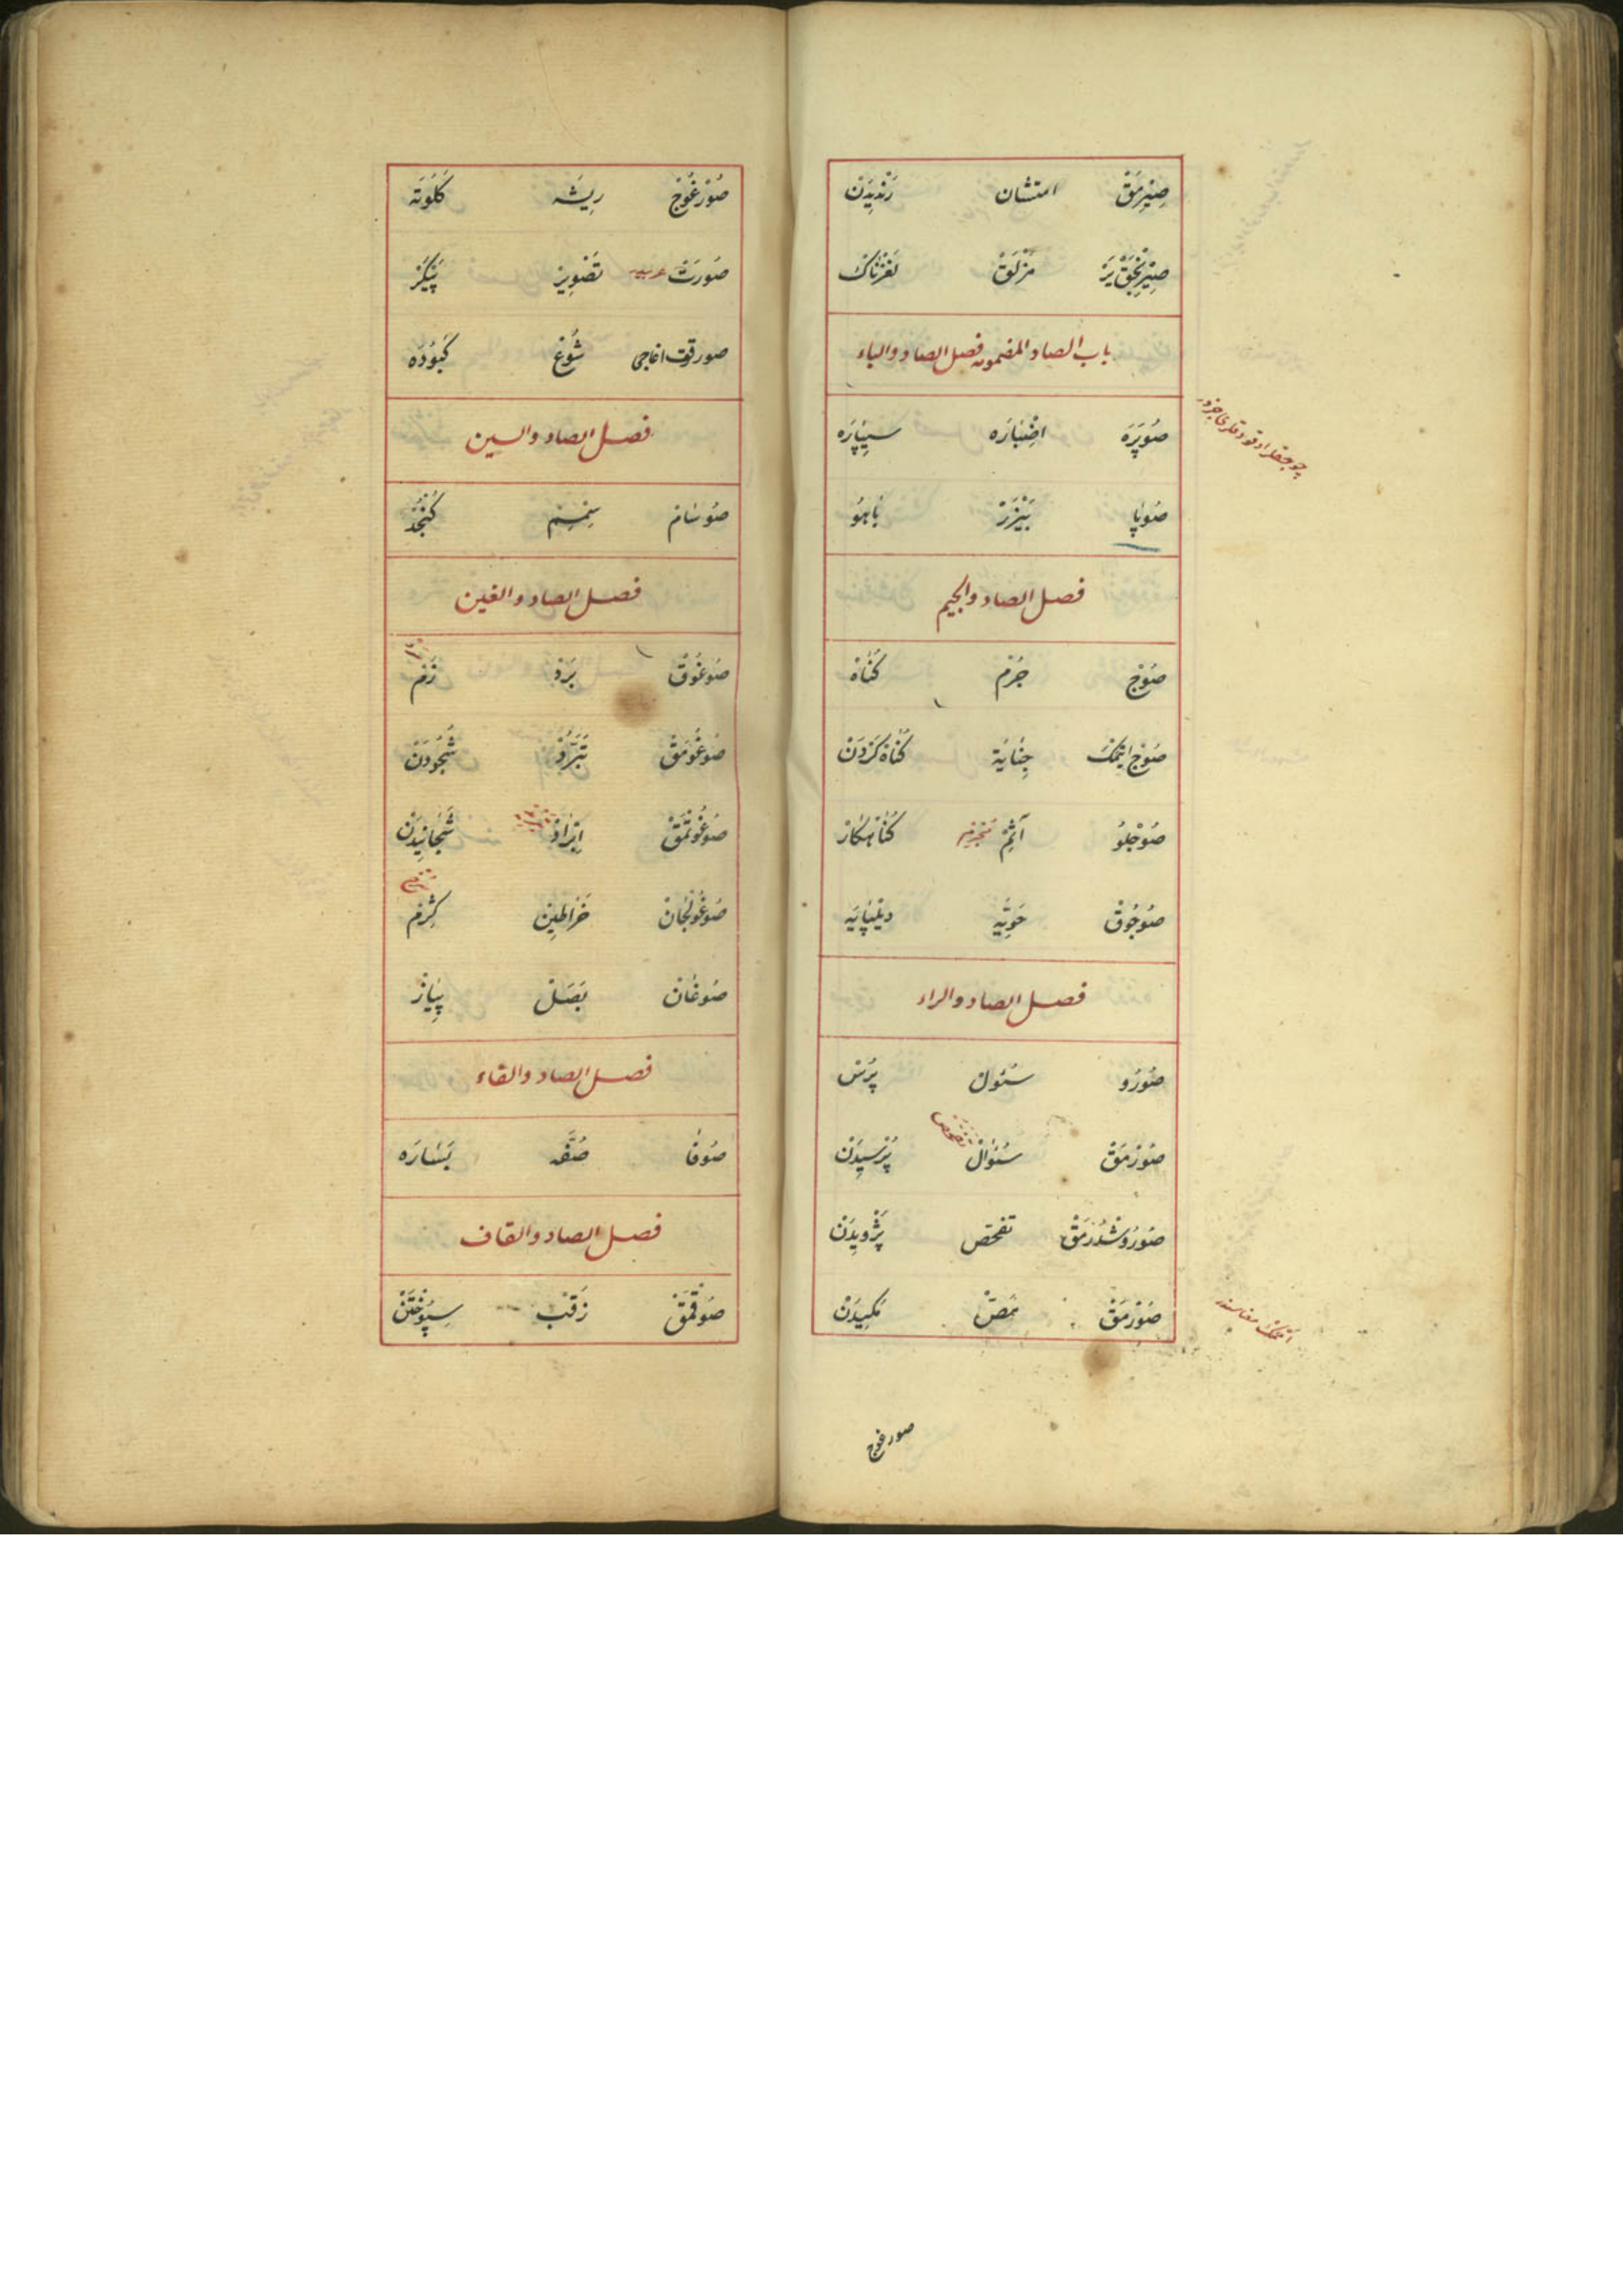 صِيْرِمَقْ امتشان رَنْدِيَدن
صِيْرِنَجَقْ يَرْ مَزْلَقْ لَغْزْنَاكْ
باب الصاد المضمومه فصل الصاد والباء
صُوپَرَه اضْبَارَه سِيپَارَه
صُوپَا بَيْزَرْ بَاهُو
فصل الصاد والجيم
صُوجْ جُرْم كُنَاهْ
صُوجْ ايتمَكْ جِنَايَة كُنَاهْ كَرْدَنْ
صُوجْلُو آثِمْ مُجْرِم كُنَاهكَارْ
صُوجُوقْ حَوِيَّه
فصل الصاد والراء
صُورُو سئول پُرْسْ
صُورْمَقْ سُئوَالْ پُرْسِيدَنْ
صُورُوشْدُرْمَقْ تفحص پَژْوِيدَنْ
صُورْمَقْ مَصّ مَكِيدَنْ
امْمَكْ معناسنه
صورغوج
صُورْغُوجْ رِيشَه كَلَوتَه
صُورَتْ عربيه تَصْوِيرْ پَيْكَرْ
صورقوت اغاجى شُوع كَبُودَه
فصل الصاد والسين
صُوسَام سِمْسِم كُنْجُدْ
فصل الصاد والغين
صُوغُوقْ بَرْدْ زَمْ
صُوغُومَقْ تَبَرُّدْ شَجُودَنْ
صُوغُوتْمَقْ اِبْرَادْ شَجَانِيدَنْ
صُوغُولْجَانْ خَرَاطِينْ كِرْمْ
صُوغَانْ بَصَلْ پِيَازْ
فصل الصاد والفاء
صُوفَا صُفَّه بَسَارَه
فصل الصاد والقاف
صُوقْمَقْ زَقْبْ سِپُوخْتَنْ